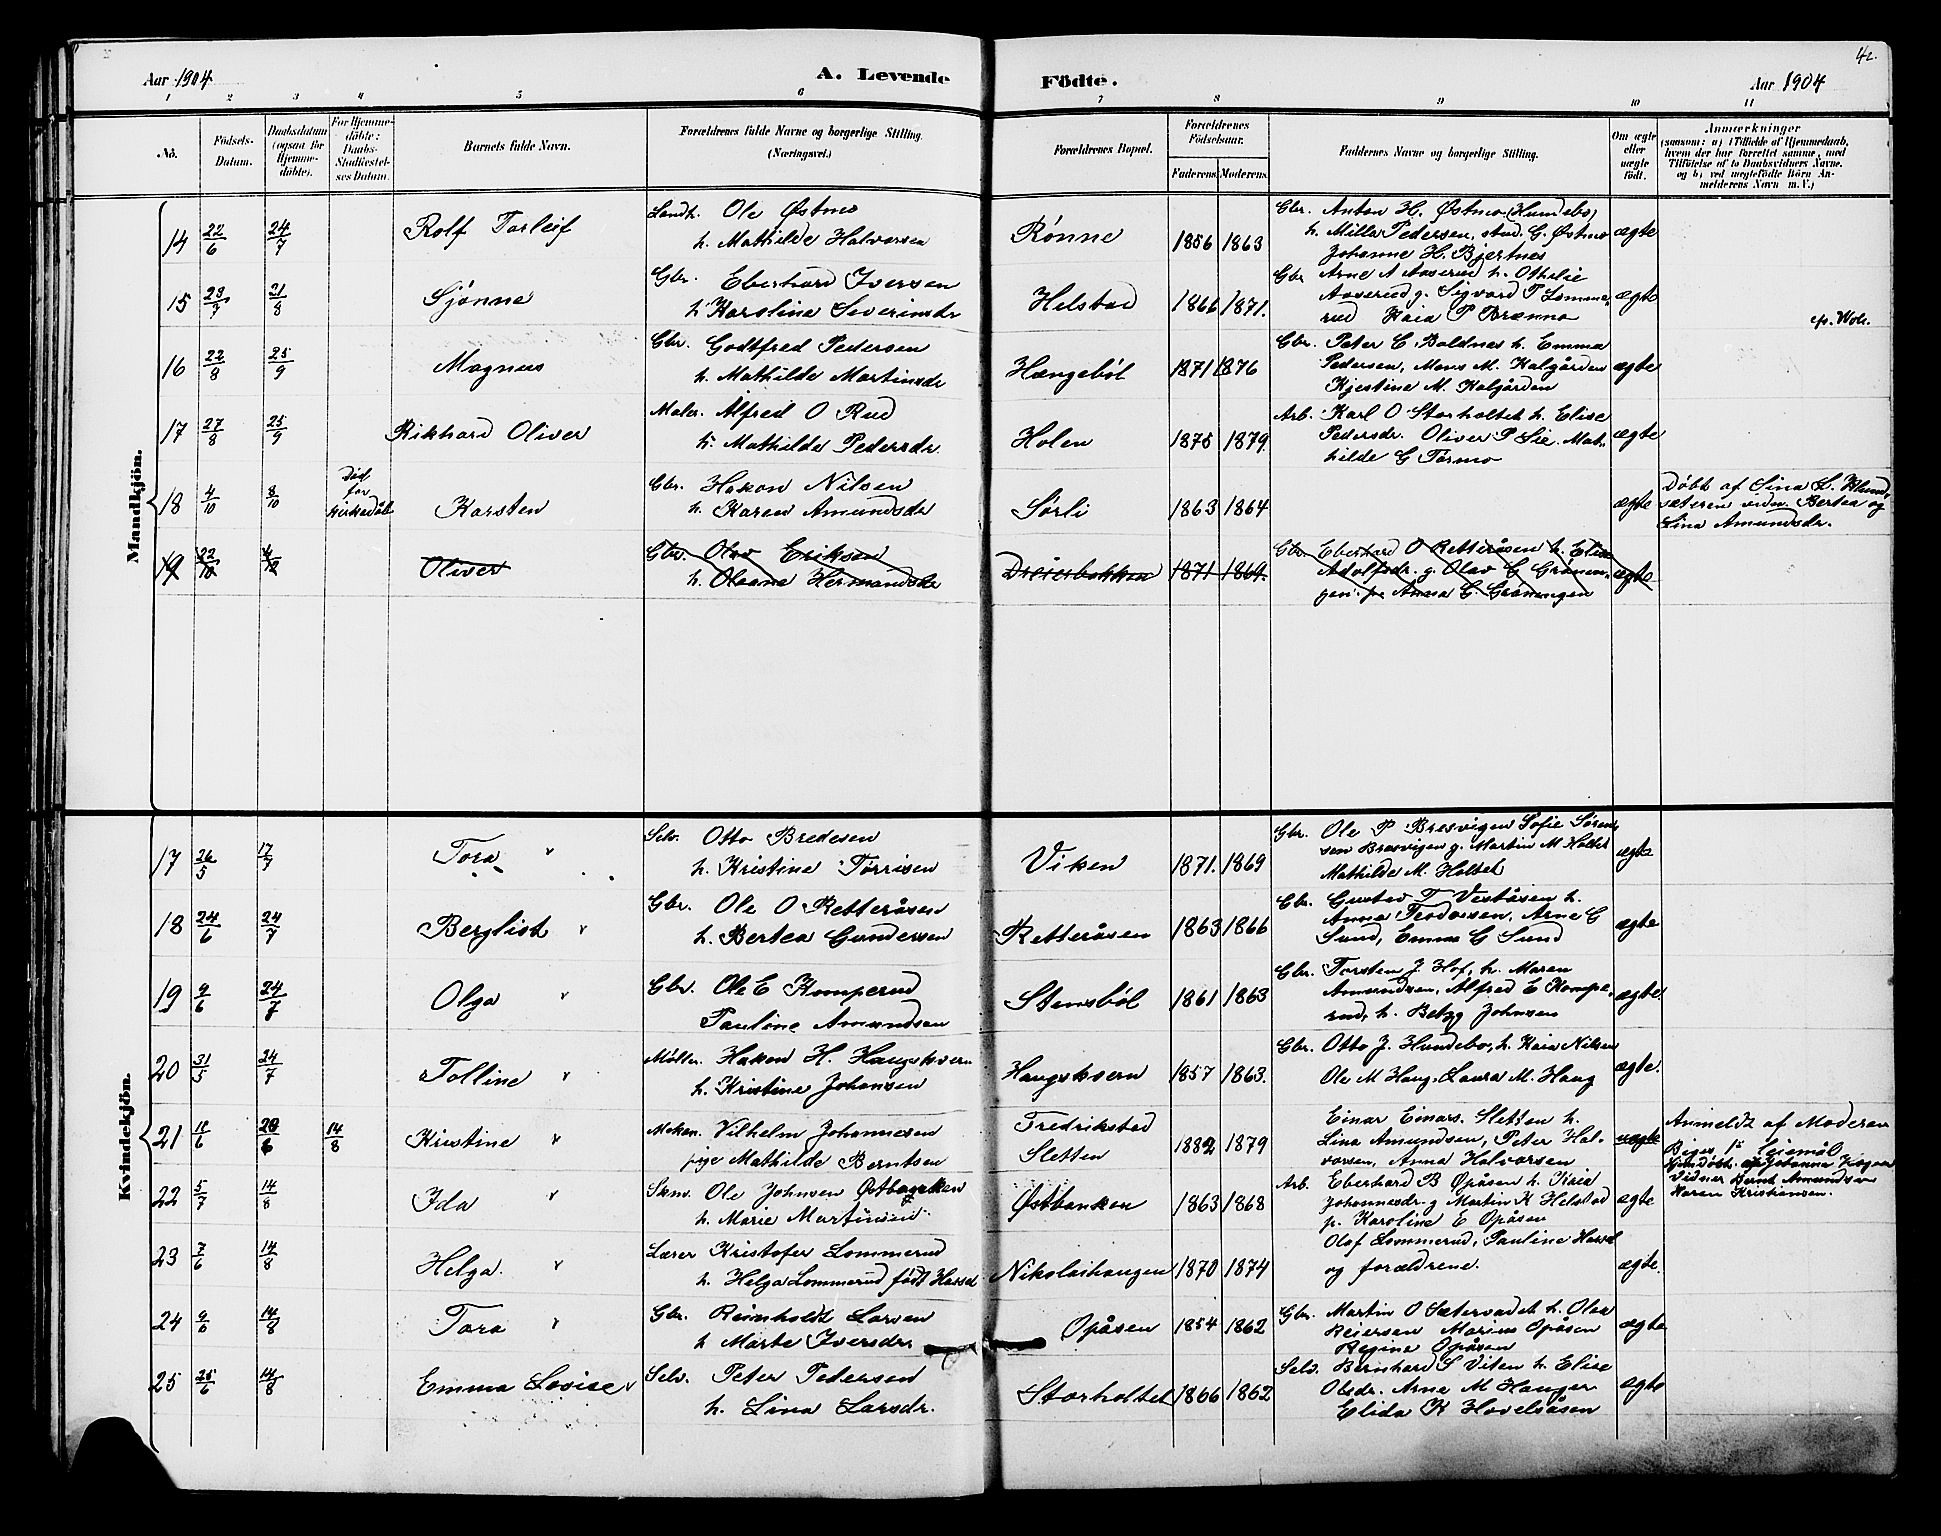 42.
Aar 1904 A. Levende Födte. Aar 1904
1 2 3 4 5 6 7 8 9 10 11
No. Födsels-Datum. Daabsdatum (ogsaa for Hjemmedöbte). For Hjemmedöbte: Daabs-Stadfæstelses Datum. Barnets fulde Navn. Forældrenes fulde Navne og borgerlige Stilling. (Næringsvei.) Forældrenes Bopæl. Forældrenes Födselsaar. Faderens. Moderens. Faddernes Navne og borgerlige Stilling. Om ægte eller uægte födt. Anmærkninger (saasom: a) i Tilfælde af Hjemmedaab, hvem der har forrettet samme, med Tilföielse af to Daabsvidners Navne. og b) ved uægtefödte Börn Anmelderens Navn m. V.)
Mandkjön.
14 22/6 24/7 Rolf Torleif Landh. Ole Østmo Rønne 1856 1863 Gbr. Anton H. Østmo (Hundebo) ægte
h. Mathilde Halvorsen h. Milla Pedersen, stud. G. Østmo
Johanne H. Bjertnes
15 23/7 21/8 Sjønne Gbr. Eberhard Iversen Helstad 1866 1871. Gbr Arne A Aaserud h. Othelie ægte
h. Karoline Severinsdr Aaserud g. Sigvard P Lomme-
rud Kaia P Brænno
16 22/8 25/9 Magnus Gbr. Godtfred Pedersen Hængebøl 1871 1876 Gbr. Peter C. Boldnes h. Emma ægte
h. Mathilde Martinsdr Pedersen, Mons M. Kalgården
Kjestine M. Kalgården
17 27/8 25/9 Rikhard Oliver Maler. Alfred O Rud Holen 1875 1879. Arb. Karl O Storholtet h. Elise ægte
h. Mathilde Pedersdr. Pedersdr. Oliver P Lie. Mat-
hilde G Tørmo
18 4/10 8/10 Død før kirkedåb Karsten Gbr. Hakon Nilsen Sørli 1863 1864 ægte Døbt af Lina L. Klund-
h. Karen Amundsdr sæteren viden. Bertea og
Lina Amundsdr.
19 22/10 4/12 Oliver Gbr. Olav Eriksen Dreiersbakken 1871 1869. Gbr. Eberhard O Retteråsen h. Elise ægte
h. Oleane Hermandsdr Adolfsdr. g. Olav G Grønen-
gen. p. Anna G. Grønengen
Kvindekjön.
17 26/5 17/7 Tora Selv. Otto Bredesen Viken 1871. 1869 Gbr. Ole P Bresvigen Sofie Søren- ægte
h. Kristine Tørrisen sen Bresvigen g. Martin M Holtet
Mathilde M. Holtet
18 24/6 24/7 Bergliot Gbr. Ole O Retteråsen Retteråsen 1863 1866 Gbr. Gustav T Veståsen h. ægte
h. Bertea Gundersen Anna Teodorsen, Arne G
Sund, Emma G Sund
19 9/6 24/7 Olga Gbr. Ole E Komperud Stensbøl 1861 1863 Gbr. Torsten J Hof, h. Maren ægte
Pauline Amundsen Amundsen, Alfred E Kompe-
rud, h. Betzy Johnsen
20 31/5 24/7 Tolline Møller. Hakon H. Haugskvern Haugskvern 1857 1863. Gbr. Otto J. Hundebo, h. Kaia Nilsen ægte.
h. Kristine Johansen Ole M Haug. Laura M. Haug
21 11/6 14/8 Kristine Mekan. Vilhelm Johannesen Fredrikstad 1882 1879 Einar Einars. Sletten h. uægte Anmeldt af Moderen
pige Mathilde Berntsen Sletten Lina Amundsen, Peter Hal-
vorsen, Anna Halvorsen
Begges 1ste leiemål
Vidner Bernt Amundsen
Karen Kristiansen.
22 5/7 14/8 Ida Skm. Ole Johnsen Østbanken Østbanken 1863 1868 Arb. Eberhard B Opåsen h. Kaia ægte
h. Marie Martinsen Johannesdr. g Martin K Helstad
p. Karoline E Opåsen
23 7/6 14/8 Helga. Lærer Kristofer Lommerud Nikolaihaugen 1870 1874 Olaf Lommerud, Pauline Hassel ægte.
h. Helga Lommerud født Hassel og forældrene.
24 9/6 14/8 Tora Gbr. Reinholdt Larsen Opåsen 1854 1862 Gbr. Martin O Sætervadet h. Olea ægte
h Marte Iversdr. Reiersen Marius Opåsen
Regine Opåsen
25 25/6 14/8 Emma Lovise Selv. Peter Pedersen Storholtet 1866 1862 Selv. Bernhard S Viken h. Elise ægte
h. Lina Larsdr. Olsdr. Arne M Hauger
Elida K Hovelsåsen